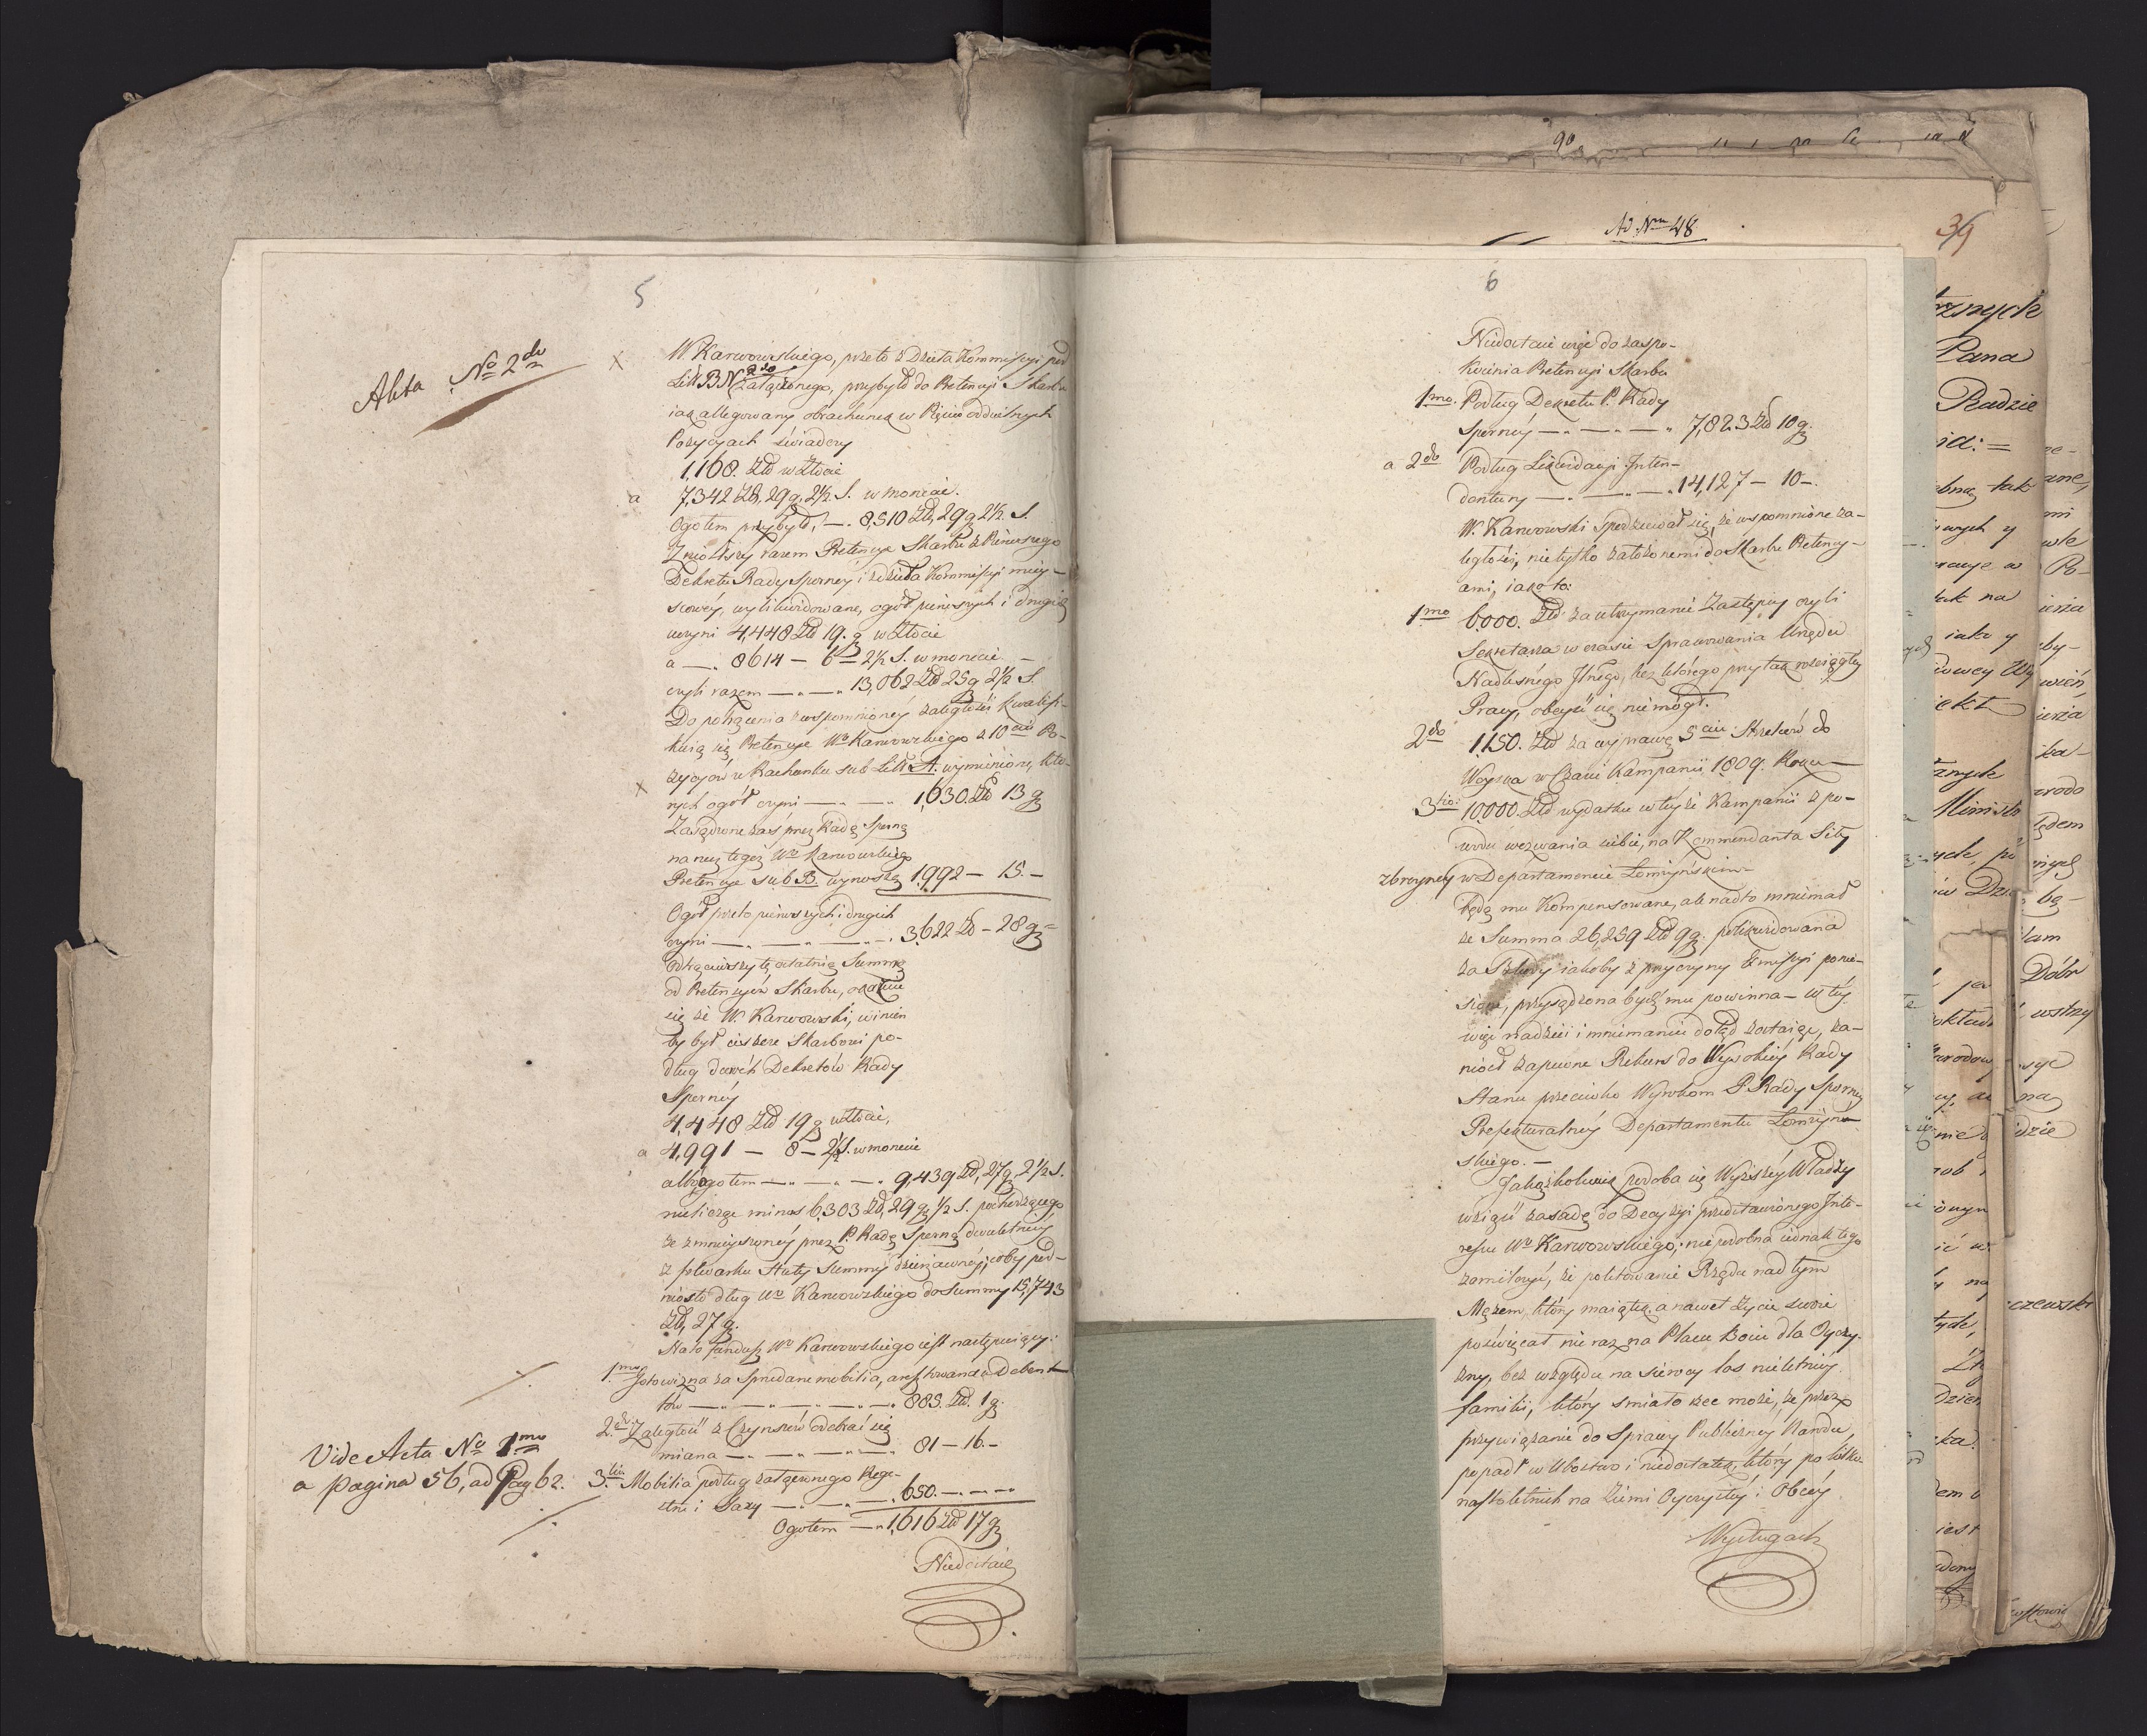 5
Akta No 2do
W Karwowskiego, przeto z Dzieła Kommissyi pod
Litt B N 2do załączonego, przybyło do Pretensyi Skarbu
iak allegowany obrachunek w Pięciu oddzielnych
Pozycyach świadczy
1,168. Złł w złocie
a 7,342 Zł, 29 g. 2½ S. w monecie.
Ogołem przybyło, —. 8,510 Zł, 29 g 2½. S.
Zniosłszy razem Pretensye Skarbu z Pierwszego
Dekretu Rady Sporney i z dzieła Kommissyi miey-
scowéy, wylikwidowane, ogół pierwszych i drugich
uczyni 4,448 Złł 19. g w Złocie
a —. 8614 — 6 — 2½ S. w monecie —
czyli razem —"—" 13,062 Złł 25 g 2½ S.
Do potrącenia z wspomnioney zaległości kwalifi-
kuią się Pretensye Wo Karwowskiego z 10ciu Po-
zycyów w Rachunku sub Litt A. wymienione, któ-
rych ogół czyni —"—" 1,630. Złł 13 g
Zasądzone zaś przez Radę Sporną
na rzecz tegoż Wo Karwowskiego
Pretensye sub B. wynoszą 1992 — 15. —
Ogół przeto pierwszych i drugich
czyni —"—"—". 3,622 Zł — 28 g =
Odtrąciwszy tę ostatnią Summę
od Pretensyów Skarbu, okaże
się że W. Karwowski, winien
by był ieszcze Skarbowi po-
dług dwóch Dekretów Rady
Sporney
4,448 Złł 19 g w Złocie,
a 4,991 — 8 — 2½ S. w monecie
albo ogołem —"—"—" 9,439 Zł, 27 g 2½ S.
nielicząc minus 6,303 Zł, 29 g ½ S. pochodzącego
ze zmnieyszoney przez P. Radę Sporną dwuletniey
z folwarku Summy dzierżawney; coby pod-
niosło dług Wo Karwowskiego do Summy 15,743
Zł, 27 g.
Na to fundusz Wo Karwowskiego iest następuiący:
1mo Gotowizna za Sprzedane mobilia, aresztowane u Debent
tów —"—"—"—" 885. Złł. 1 g.
2do Zaległość z Czynszów odebrać się
miana —"—"—" 81 — 16. —
Vide Acta No 1mo
a pagina 56, ad Pag 62.
3tio Mobilia podług załączonego Rege-
stru i Taxy —"—". 650. —"—
Ogołem —" 1,616 Złł 17 g
Niedostaie
90
Ad Nrm 48
39
6
Niedostaie więc do zaspo-
koienia Pretensyi Skarbu
1mo. Podług Dekretu P. Rady
Sporney —"—"—" 7,823 Złł 10 g.
a 2do Podług Likwidacyi Inten-
dentury —"—"—" 14,127 — 10 —.
W. Karwowski spodziewał się, że wspomnione za-
ległości, nietylko założonemi do Skarbu Pretensy-
ami, iako to:
1mo 6,000. Złł za utrzymanie Zastępcy czyli
Sekretarza w czasie Sprawowania Urzędu
Nadleśnego Jłnego, bez którego przy tak rozciągłey
Pracy, obeyść się nie mógł.
2do 1,150. Złł za wyprawę 5ciu Strzelców do
Woyska w Czasie Kampanii 1809. Roku —
3tio: 10,000. Złł wydatku w teyże Kampanii z po-
wodu wezwania siebie, na Kommendanta Siły
zbroyney w Departamencie Łomżyńskim —
będą mu kompensowane, ale nadto mniemał
że Summa 26,259 Złł 9 g. polikwidowana
za Szkody iakoby z przyczyny Emissyi ponie-
sione, przysądzona bydź mu powinna — W tey
więc nadziei i mniemaniu dotąd zostaiąc, za-
niosł zapewne Rekurs do Wysokiéy Rady
Stanu przeciwko Wyrokom P. Rady Sporney
Prefekturalnéy Departamentu Łomżyn-
skiego. —
Jakążkolwiek podoba się Wyższéy Władzy
wziąść zasadę do Decyzyi przedstawionego Inte-
ressu Wo Karwowskiego; niepodobna iednak tego
zamilczyć, że politowanie Rządu nad tym
Mężem, który maiątek, a nawet życie swoie
poświęcał nie raz na Placu Boiu dla Oyczy-
zny, bez względu na sierocy los nieletniéy
familii, który smiało rzec może, że przez
przywiązanie do Sprawy Publiczney Narodu,
popadł w Ubóstwo i niedostatek, który po kilku-
nastoletnich na Ziemi Oyczystéy i Obcéy
Wysługach